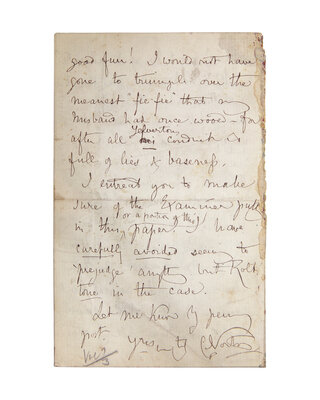 good fun! I would not have
gone to triumph over the
meanest "fie-fie" that my
husband had once wooed – for
Yelverton
after all his conduct is
full of lies & baseness.
I intreat you to make
sure of the Examiner
(or a portion of this)
in this paper. I have
carefully avoided
"prejudge" but
tone in the case.
Let me know by penny
post. yrs